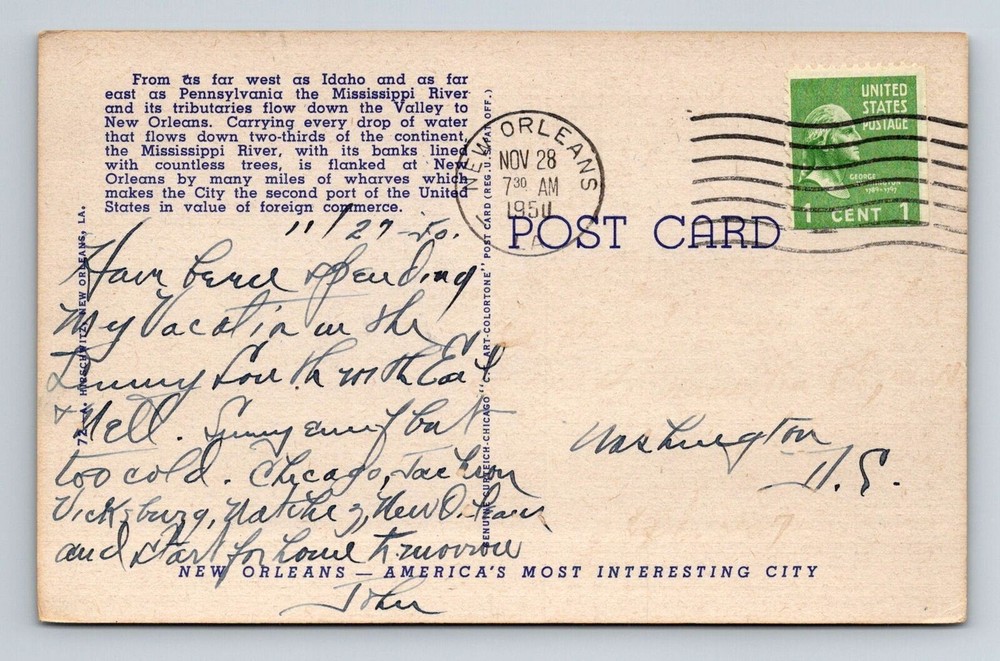 From as far west as Idaho and as far
east as Pennsylvania the Mississippi River
and its tributaries flow down the Valley to
New Orleans. Carrying every drop of water
that flows down two-thirds of the continent,
the Mississippi River, with its banks lined
with countless trees, is flanked at New
Orleans by many miles of wharves which
makes the City the second port of the United
States in value of foreign commerce.
72—A. HIRSCHWITZ, NEW ORLEANS, LA.
GENUINE CURTEICH-CHICAGO "C. T. ART-COLORTONE" POST CARD (REG. U. S. PAT. OFF.)
NEW ORLEANS
NOV 28
7 30 AM
1950
LA
UNITED
STATES
POSTAGE
GEORGE
WASHINGTON
1789-1797
1 CENT 1
POST CARD
11/27-50.
Have been spending
My Vacation in the
Sunny South with Earl
& Nell. Sunny enuf but
too cold. Chicago, Jackson
Vicksburg, Natchez, New Orleans
and start for home tomorrow
John
Washington
NEW ORLEANS — AMERICA'S MOST INTERESTING CITY